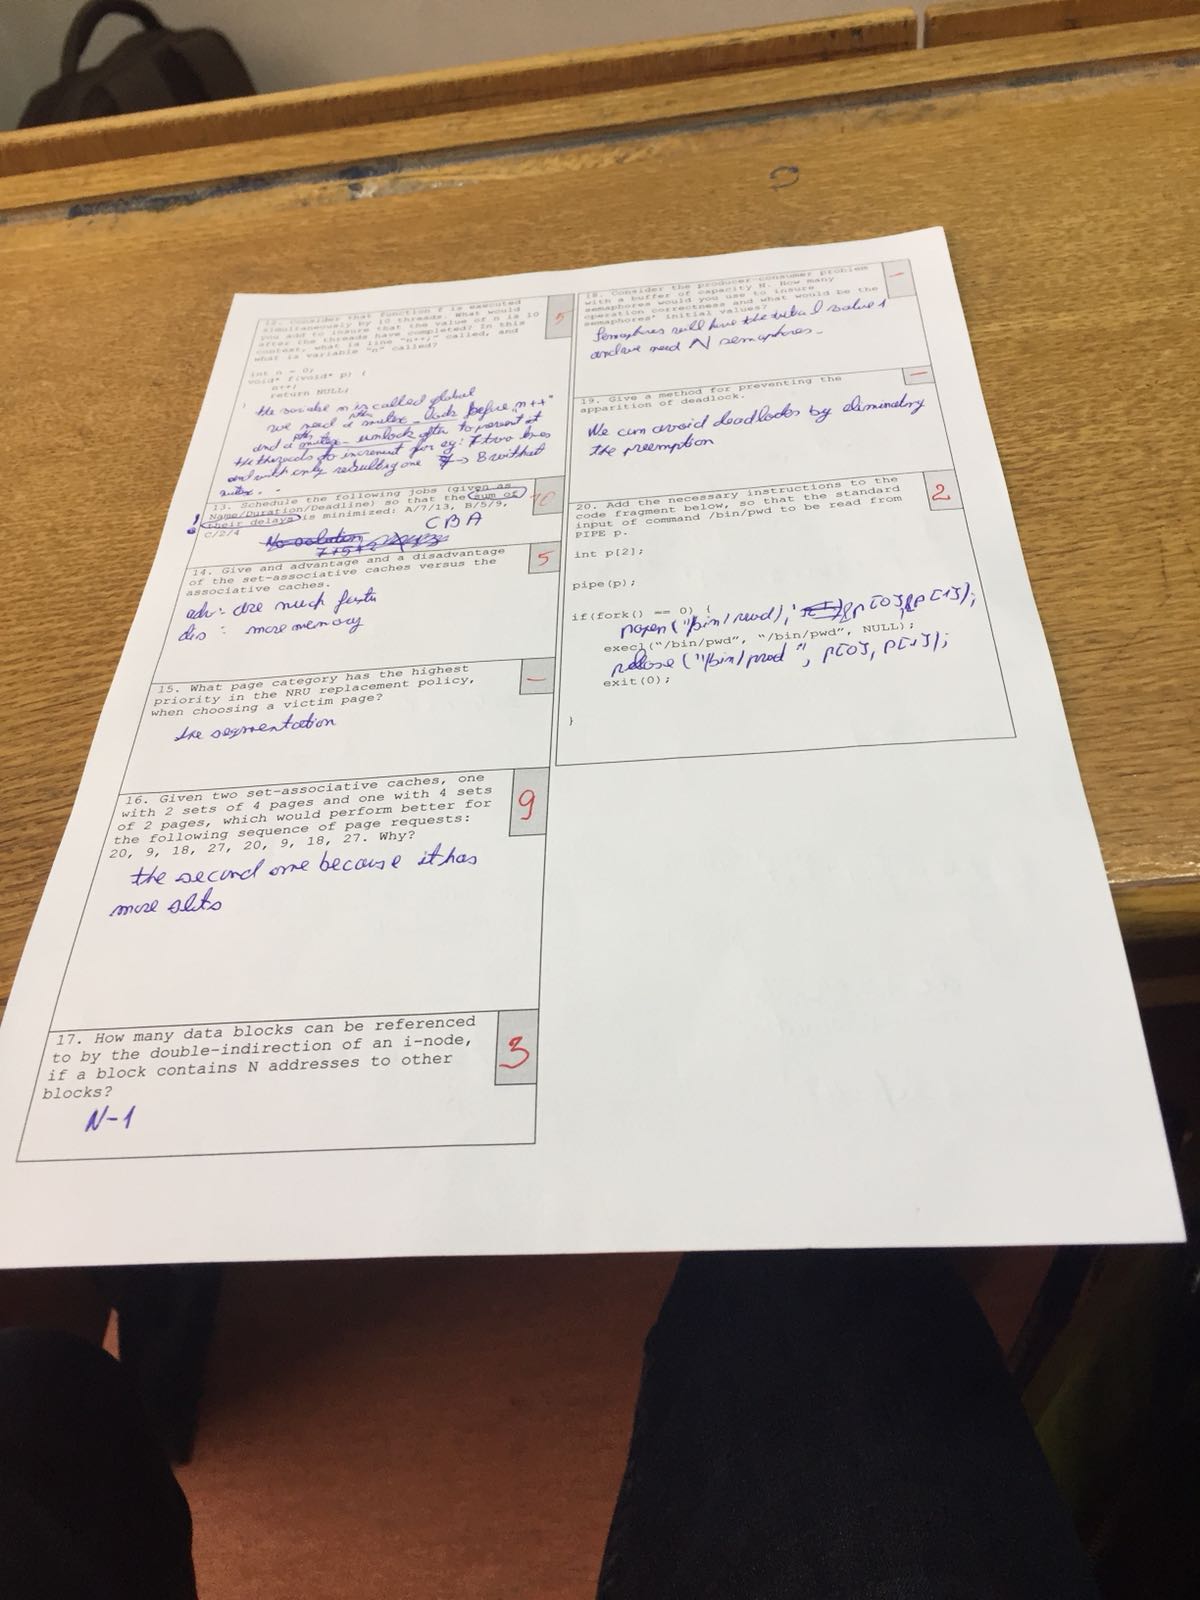 12. Consider that function f is executed
simultaneously by 10 threads. What would
you add to insure that the value of n is 10
after the threads have completed? In this
context, what is line "n++;" called, and
what is variable "n" called?
5
int n = 0;
void* f(void* p) {
n++;
return NULL;
}
the variable n is called global
we need a mutex_lock before "n++"
and a mutex_unlock after to prevent it
the threads to increment for eg: 7 two times
and with only resulting one 7 -> 8 without
mutex.
13. Schedule the following jobs (given as
Name/Duration/Deadline) so that the sum of
their delays is minimized: A/7/13, B/5/9,
C/2/4
10
CBA
No solution
7+5+2
14. Give and advantage and a disadvantage
of the set-associative caches versus the
associative caches.
5
adv: are much faster
dis: more memory
15. What page category has the highest
priority in the NRU replacement policy,
when choosing a victim page?
-
the segmentation
16. Given two set-associative caches, one
with 2 sets of 4 pages and one with 4 sets
of 2 pages, which would perform better for
the following sequence of page requests:
20, 9, 18, 27, 20, 9, 18, 27. Why?
9
the second one because it has
more slots
17. How many data blocks can be referenced
to by the double-indirection of an i-node,
if a block contains N addresses to other
blocks?
3
N-1
18. Consider the producer-consumer problem
with a buffer of capacity N. How many
semaphores would you use to insure
operation correctness and what would be the
semaphores' initial values?
-
Semaphores will have the initial value 1
and we need N semaphores.
19. Give a method for preventing the
apparition of deadlock.
-
We can avoid deadlocks by eliminating
the preemption
20. Add the necessary instructions to the
code fragment below, so that the standard
input of command /bin/pwd to be read from
PIPE p.
2
int p[2];
pipe(p);
if(fork() == 0) {
popen("/bin/read); &p[0], &p[1]);
execl("/bin/pwd", "/bin/pwd", NULL);
pclose("/bin/pwd", p[0], p[1]);
exit(0);
}